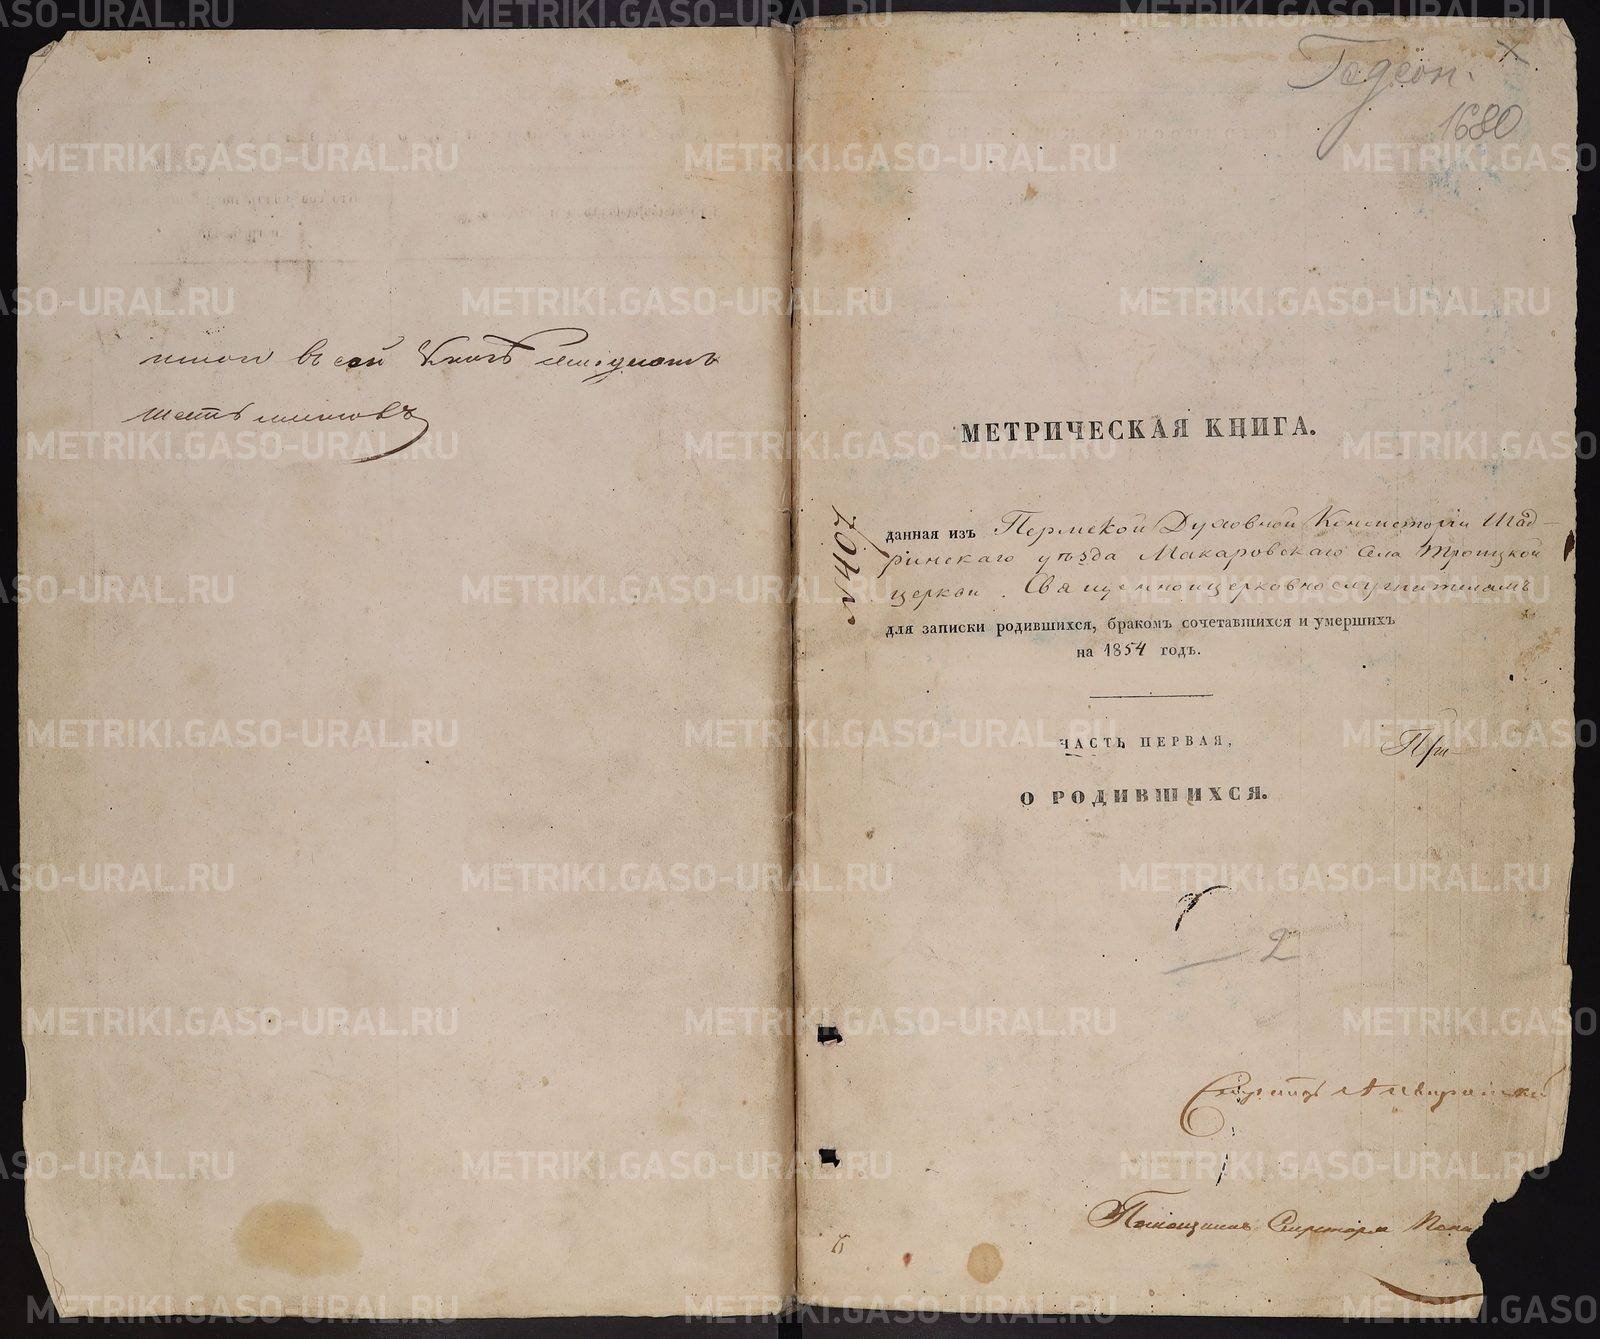 въ сей
шесть листовъ
1680
МЕТРИЧЕСКАЯ КНИГА.
данная изъ Пермской Духовной Консисторіи Шад-
ринскаго уѣзда Макаровскаго села Троицкой
церкви Священноцерковнослужителямъ
для записки родившихся, бракомъ сочетавшихся и умершихъ
на 1854 годъ.
ЧАСТЬ ПЕРВАЯ,
О РОДИВШИХСЯ.
При
2
Секретарь
Помощникъ Секретаря
METRIKI.GASO-URAL.RU